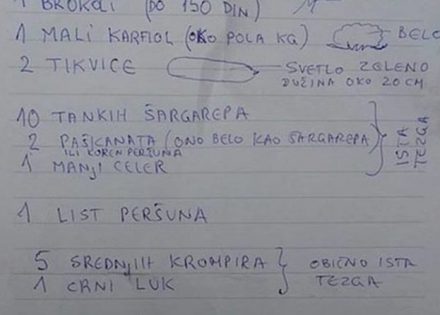 1 BROKOLI (DO 150 DIN)
1 MALI KARFIOL (OKO POLA KG) BELO
2 TIKVICE SVETLO ZELENO
DUŽINA OKO 20 CM
10 TANKIH ŠARGAREPA
2 PAŠKANATA (ONO BELO KAO ŠARGAREPA)
ILI KOREN PERŠUNA
1 MANJI CELER
ISTA TEZGA
1 LIST PERŠUNA
5 SREDNJIH KROMPIRA OBIČNO ISTA
1 CRNI LUK TEZGA